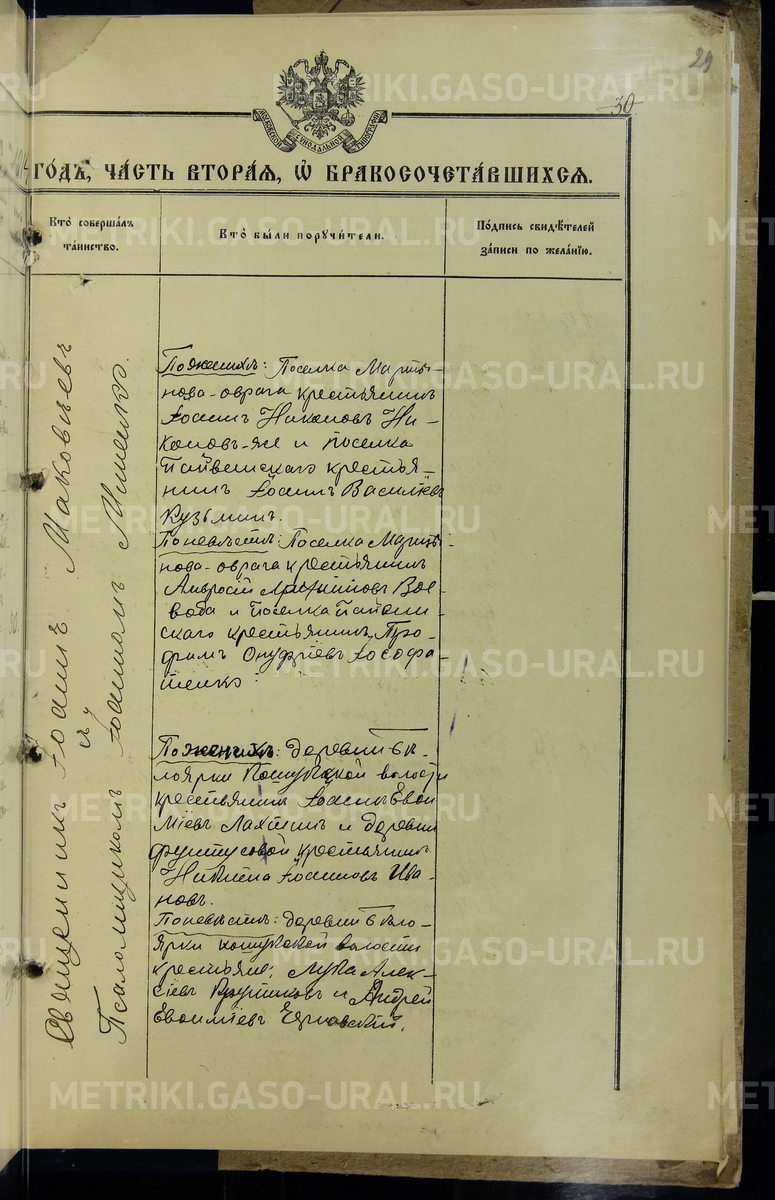 29
30
МОСКОВСКОЙ СУНОДАЛЬНОЙ ТИПОГРАФІИ
го́дъ, ча́сть втора́я, ѽ бракосочета́вшихсѧ.
Кто̀ соверша́лъ
та́инство.
Кто̀ бы́ли поручи́тели.
По́дпись свидѣ́телей
за́писи по жела́нїю.
Священникъ Іоаннъ Маковѣевъ
съ
Псаломщикомъ Іоанномъ Мишенко.
По женихѣ: Поселка Марты-
нова-оврага крестьянинъ
Іоаннъ Никоновъ Ни-
коновъ-же и поселка
крестья-
нинъ Іоаннъ Василіевъ
Кузьминъ.
По невѣстѣ: Поселка Марты-
нова-оврага крестьянинъ
Амвросій Вое-
вода и поселка
скаго крестьянинъ Тро-
фимъ Онуфріевъ Іософа-
тенко.
По женихѣ: деревни Бѣ-
лоярки Кошукской волости
крестьянинъ Іоаннъ Евои
міевъ Лахтинъ и деревни
Фунтусовой крестьянинъ
Никита Іоанновъ Ива-
новъ.
По невѣстѣ: деревни Бѣло-
ярки Кошукской волости
крестьяне: Лука Алек-
сіевъ Крутиковъ и Андрей
Евоиміевъ
METRIKI.GASO-URAL.RU